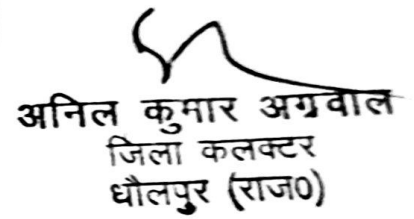 अनिल कुमार अग्रवाल
जिला कलक्टर
धौलपुर (राज0)